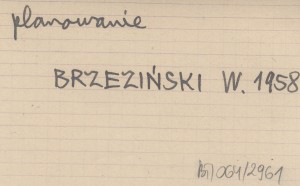 planowanie
BRZEZIŃSKI W. 1958
064/2961